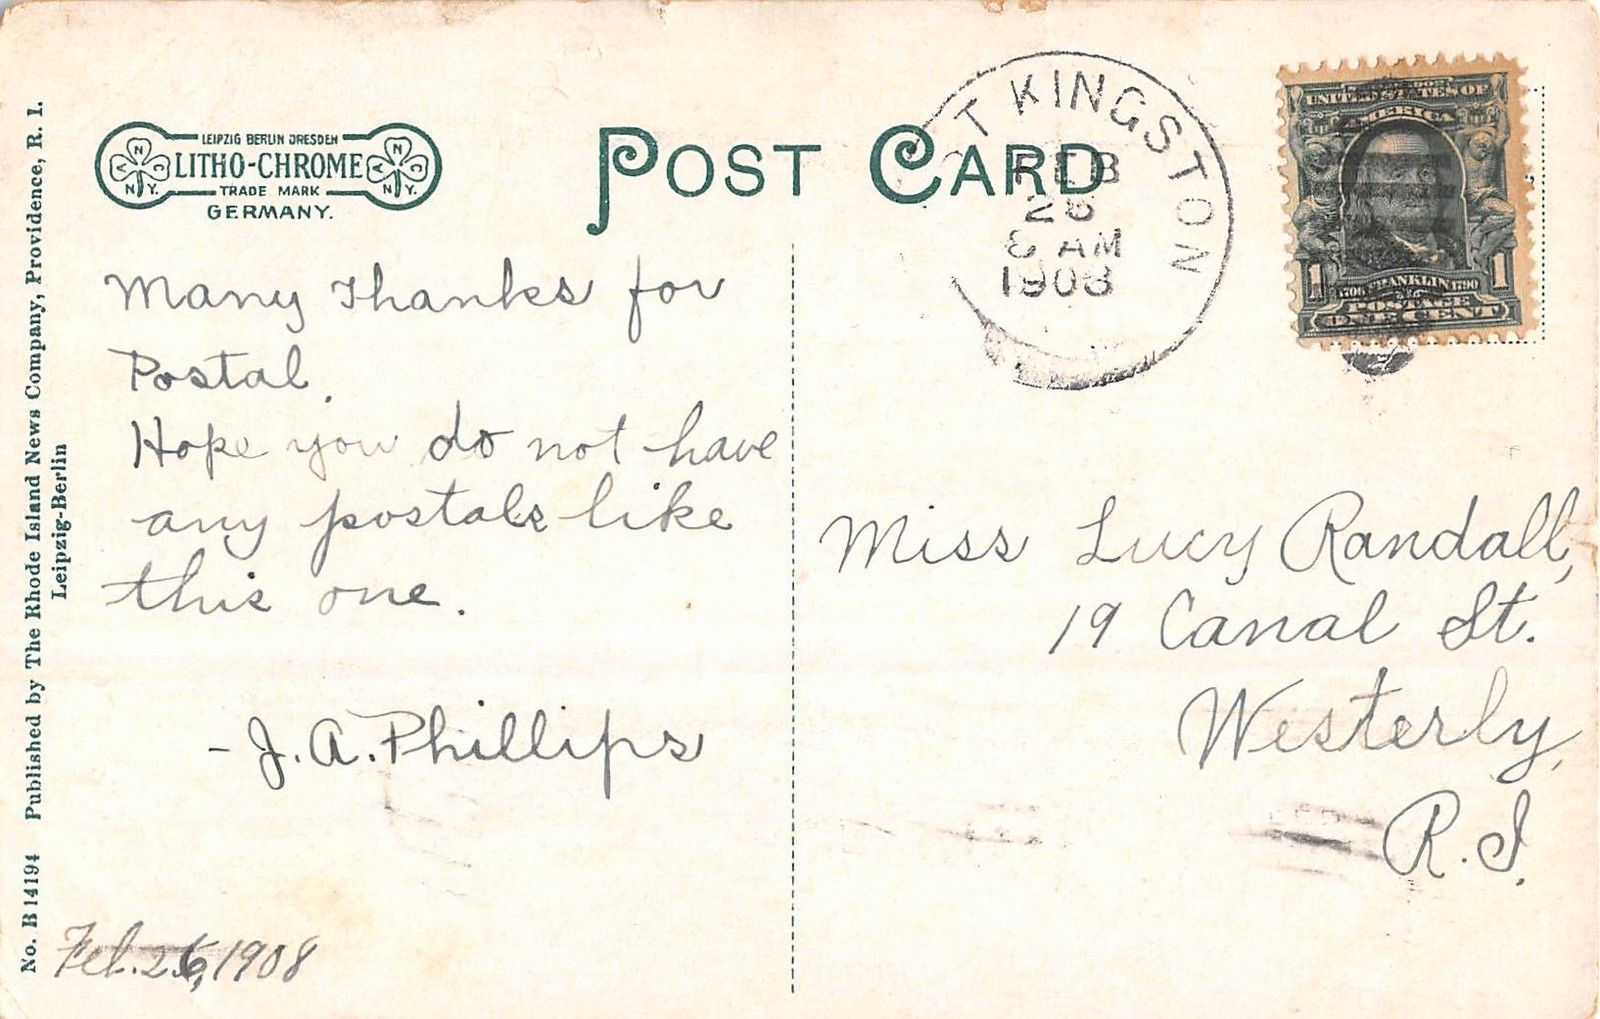 LEIPZIG BERLIN DRESDEN
LITHO-CHROME
TRADE MARK
GERMANY.
N V C N.Y.
N A C N.Y.
POST CARD
T KINGSTON
FEB
26
8 AM
1908
UNITED STATES OF
AMERICA
1 1706 FRANKLIN 1790 1
POSTAGE
ONE CENT
Many Thanks for
Postal.
Hope you do not have
any postals like
this one.
- J. A. Phillips
Feb. 26, 1908
Miss Lucy Randall,
19 Canal St.
Westerly,
R. I.
No. B 14194 Published by The Rhode Island News Company, Providence, R. I.
Leipzig-Berlin